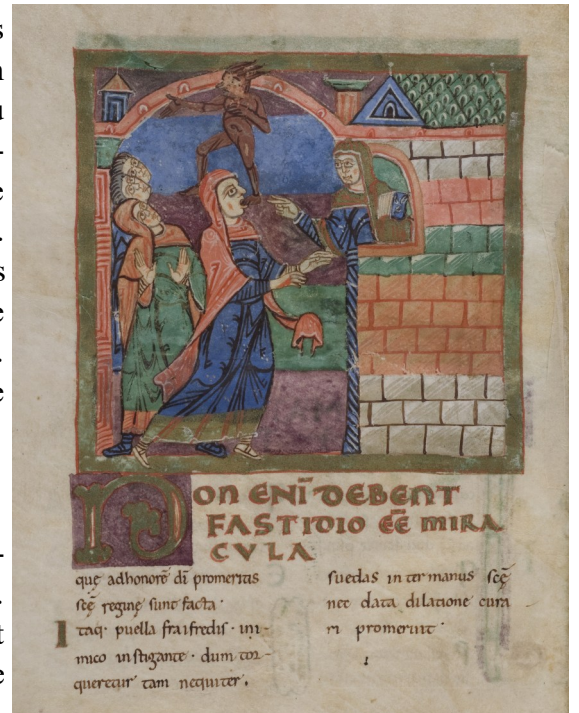 NON ENĪ DEBENT
FASTIDIO EĒ MIRA
CVLA
que adhonorē dī promeritis
scē regine sunt facta·
Itaq· puella fraifredis· ini-
mico instigante· dum tor-
queretur tam nequiter.
suedas inter manus scē
nec data dilatione cura-
ri promeruit·